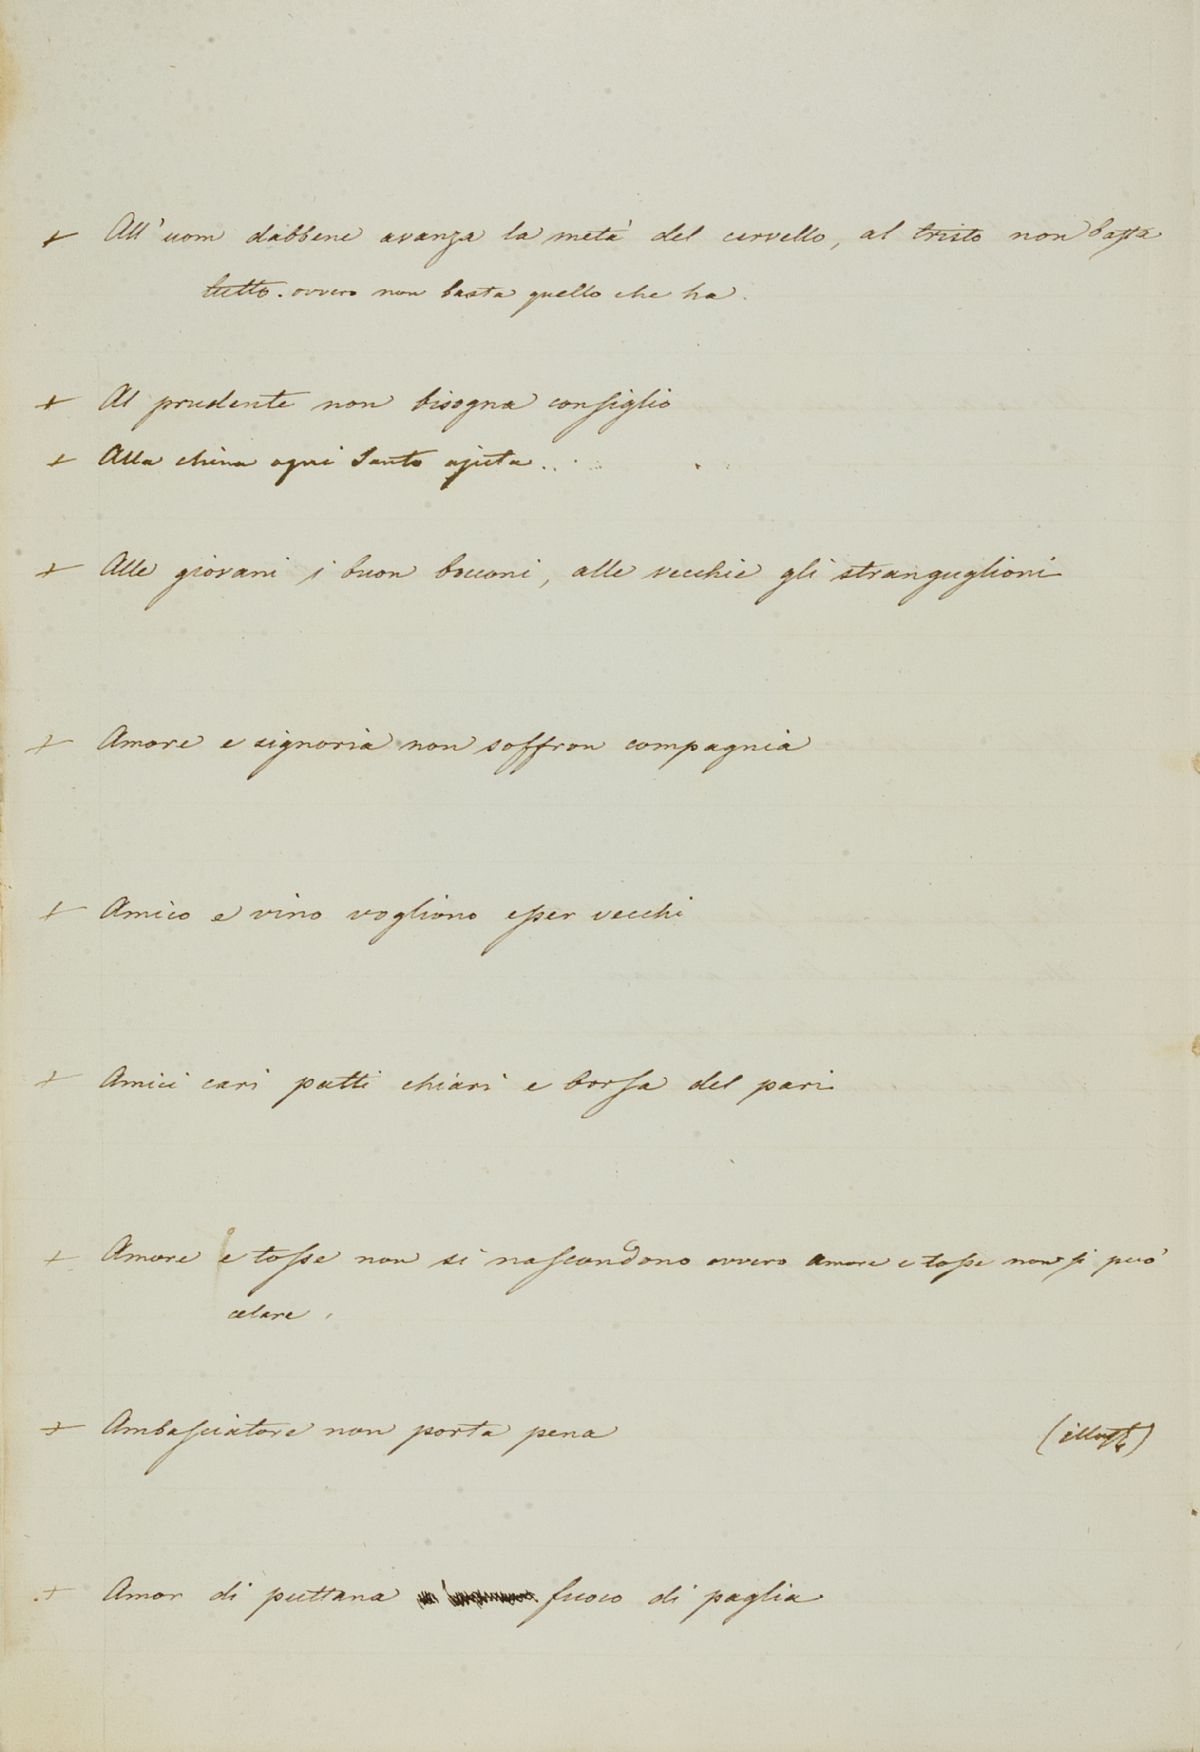 + All'uom dabbene avanza la metà del cervello, al tristo non basta
tutto. ovvero non basta quello che ha.
+ Al prudente non bisogna consiglio
+ Alla china ogni Santo ajuta..
+ Alle giovani i buon bocconi, alle vecchie gli stranguglioni
+ Amore e signoria non soffron compagnia
+ Amico e vino vogliono esser vecchi
+ Amici cari patti chiari e borsa del pari
+ Amore e tosse non si nascondono ovvero amore e tosse non si può
celare.
+ Ambasciatore non porta pena
+ Amor di puttana fuoco di paglia